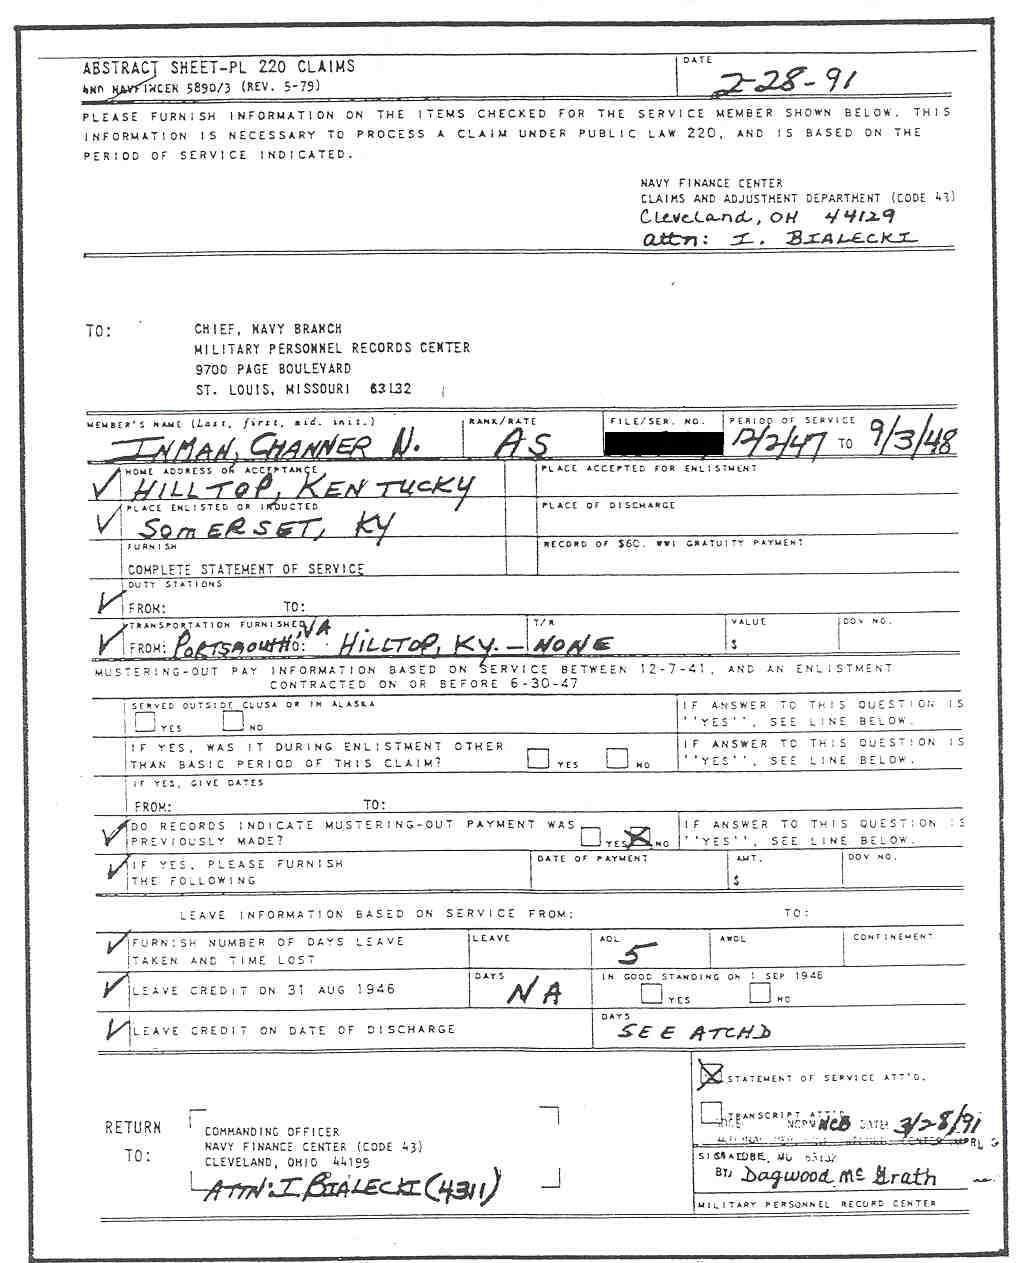 ABSTRACT SHEET-PL 220 CLAIMS
DATE
2-28-91
5890/3 (REV. 5-79)
PLEASE FURNISH INFORMATION ON THE ITEMS CHECKED FOR THE SERVICE MEMBER SHOWN BELOW. THIS
INFORMATION IS NECESSARY TO PROCESS A CLAIM UNDER PUBLIC LAW 220, AND IS BASED ON THE
PERIOD OF SERVICE INDICATED.
NAVY FINANCE CENTER
CLAIMS AND ADJUSTMENT DEPARTMENT (CODE 43)
Cleveland, OH 44129
attn: I. BIALECKI
TO:
CHIEF, NAVY BRANCH
MILITARY PERSONNEL RECORDS CENTER
9700 PAGE BOULEVARD
ST. LOUIS, MISSOURI 63132
MEMBER'S NAME (Last, first, mid. init.) RANK/RATE FILE/SER. NO. PERIOD OF SERVICE
INMAN, CHANNER N. AS 12/2/47 TO 9/3/48
HOME ADDRESS ON ACCEPTANCE PLACE ACCEPTED FOR ENLISTMENT
HILLTOP, KENTUCKY
PLACE ENLISTED OR INDUCTED PLACE OF DISCHARGE
SOMERSET, KY
FURNISH RECORD OF $60. WWI GRATUITY PAYMENT
COMPLETE STATEMENT OF SERVICE
DUTY STATIONS
FROM: TO:
TRANSPORTATION FURNISHED T/R VALUE DOV NO.
FROM: PORTSMOUTH, VA TO: HILLTOP, KY. - NONE $
MUSTERING-OUT PAY INFORMATION BASED ON SERVICE BETWEEN 12-7-41, AND AN ENLISTMENT
CONTRACTED ON OR BEFORE 6-30-47
SERVED OUTSIDE CLUSA OR IN ALASKA
YES NO
IF ANSWER TO THIS QUESTION IS
''YES'', SEE LINE BELOW.
IF YES, WAS IT DURING ENLISTMENT OTHER
THAN BASIC PERIOD OF THIS CLAIM? YES NO
IF ANSWER TO THIS QUESTION IS
''YES'', SEE LINE BELOW.
IF YES, GIVE DATES
FROM: TO:
DO RECORDS INDICATE MUSTERING-OUT PAYMENT WAS
PREVIOUSLY MADE? YES NO
IF ANSWER TO THIS QUESTION IS
''YES'', SEE LINE BELOW.
IF YES, PLEASE FURNISH
THE FOLLOWING
DATE OF PAYMENT AMT. DOV NO.
$
LEAVE INFORMATION BASED ON SERVICE FROM: TO:
FURNISH NUMBER OF DAYS LEAVE
TAKEN AND TIME LOST
LEAVE AOL AWOL CONFINEMENT
5
LEAVE CREDIT ON 31 AUG 1946
DAYS
NA
IN GOOD STANDING ON 1 SEP 1946
YES NO
LEAVE CREDIT ON DATE OF DISCHARGE
DAYS
SEE ATCHD
STATEMENT OF SERVICE ATT'D.
TRANSCRIPT ATT'D
NCPM NCB DATE: 3/28/91
63132
BY: Dagwood McGrath
MILITARY PERSONNEL RECORD CENTER
RETURN
TO:
COMMANDING OFFICER
NAVY FINANCE CENTER (CODE 43)
CLEVELAND, OHIO 44199
ATTN: I BIALECKI (4311)